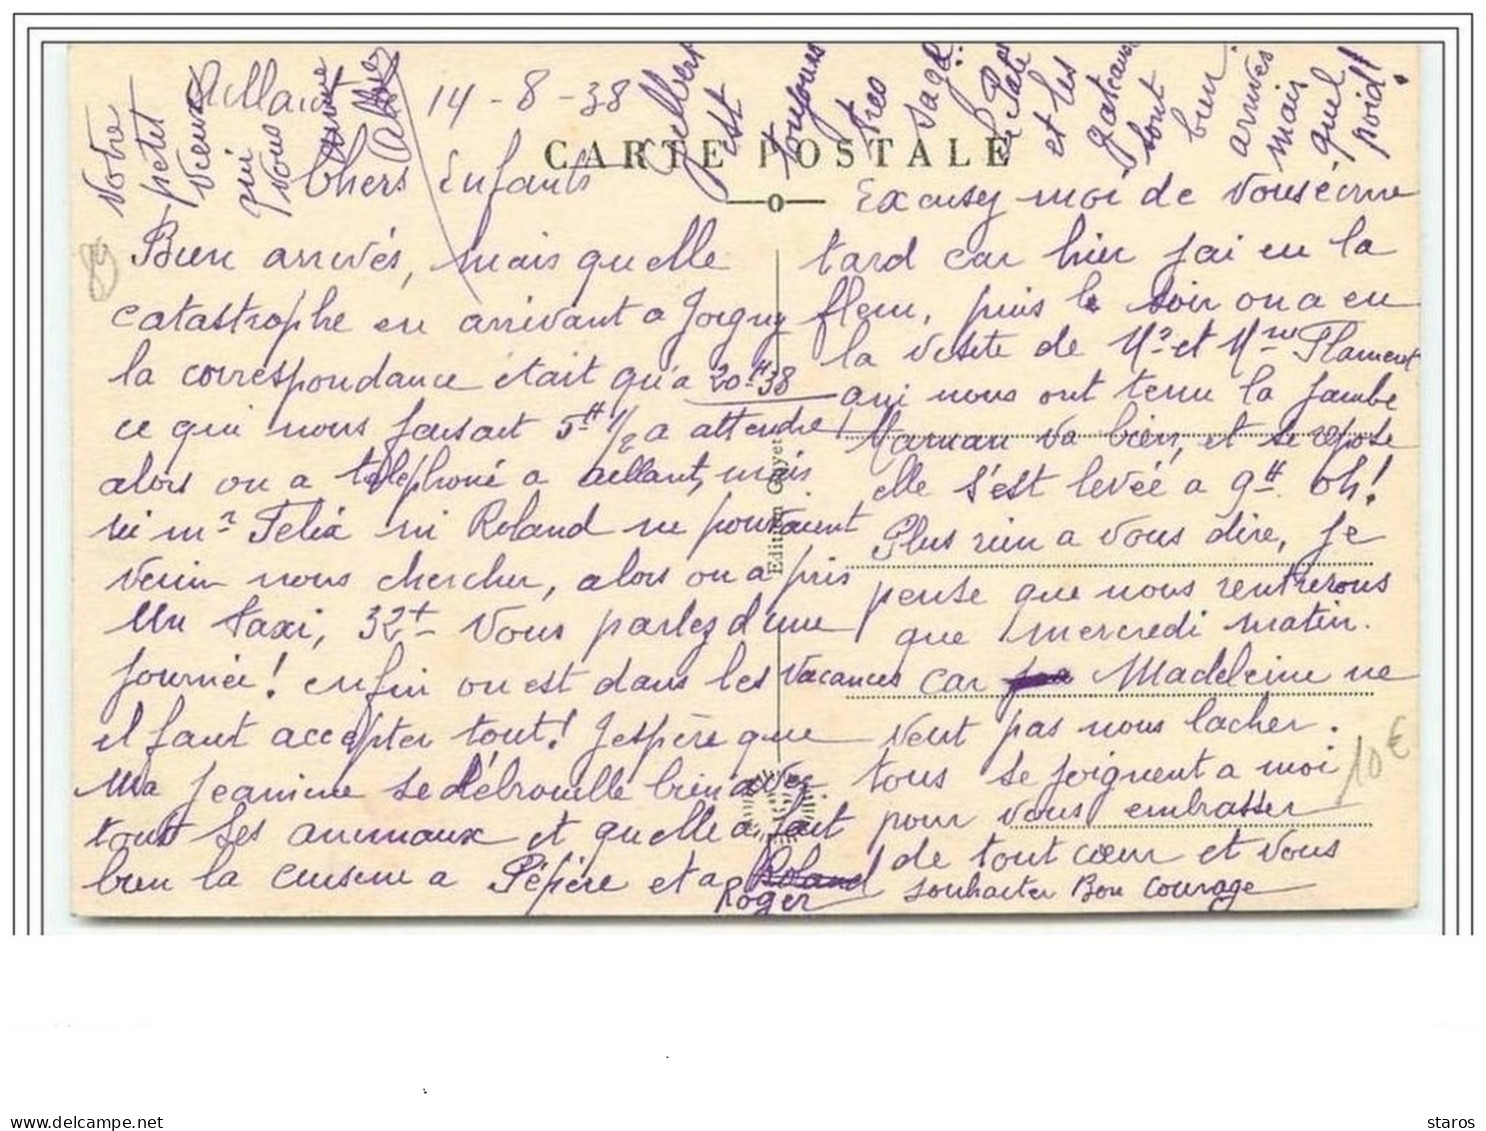 Aillant 14-8-38
CARTE POSTALE
Chers Enfants
Bien arrivés, mais quelle
catastrophe en arrivant a Joigny
la correspondance etait qu'a 20H38
ce qui nous faisait 5H 1/2 a attendre
alors on a téléphoné a aillant, mais
ni mr Felix ni Roland ne pouvaient
venir nous chercher, alors on a pris
Un taxi, 32f Vous parlez d'une
journée! enfin on est dans les vacances
il faut accepter tout! J'espère que
Ma Jeanine se débrouille bien avec
tous ses animaux et quelle a fait
bien la cuisine a Pépère et a Roland
Roger
Excusez moi de vous écrire
tard car hier j'ai eu la
flem, puis le soir on a eu
la visite de Mr et Mme Flament
qui nous ont tenu la jambe
Maman va bien, et se repose
elle s'est levée a 9H. oh!
Plus rien a vous dire, Je
pense que nous rentrerons
que mercredi matin.
car Madeleine ne
veut pas nous lacher.
tous se joignent a moi
pour vous embrasser
de tout coeur et vous
souhaiter Bon Courage
Votre
petit
Vieux
qui
vous
aime
Gilbert
est
toujours
tres
sage.
Le Paté
et les
gateaux
sont
bien
arrivés
mais
quel
poid!
Edition Guyet
89
10€
staros
delcampe.net